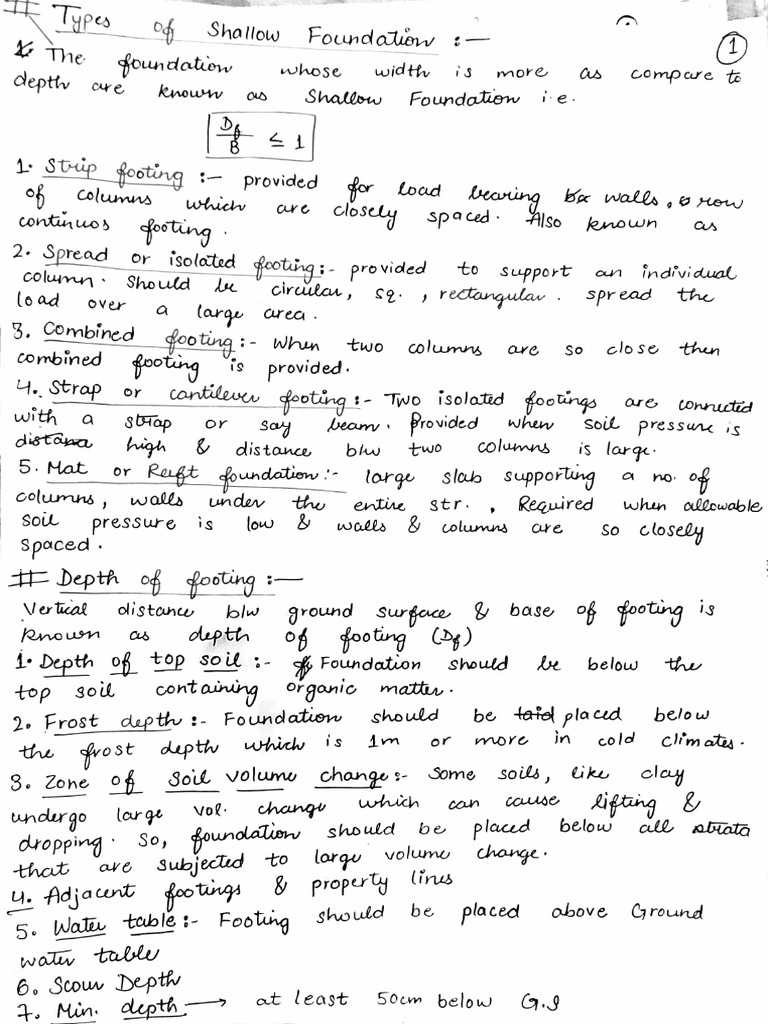 # Types of Shallow Foundation :—
①
The foundation whose width is more as compare to
depth are known as Shallow Foundation i.e.
Df/B ≤ 1
1. Strip footing :- provided for load bearing walls, row
of columns which are closely spaced. Also known as
continuos footing.
2. Spread or isolated footing:- provided to support an individual
column. Should be circular, sq., rectangular. spread the
load over a large area.
3. Combined footing:- When two columns are so close then
combined footing is provided.
4. Strap or cantilever footing:- Two isolated footings are connected
with a strap or say beam. Provided when soil pressure is
distana high & distance b/w two columns is large.
5. Mat or Raft foundation:- large slab supporting a no. of
columns, walls under the entire str. Required when allowable
soil pressure is low & walls & columns are so closely
spaced.
# Depth of footing :—
Vertical distance b/w ground surface & base of footing is
known as depth of footing (Df)
1. Depth of top soil :- Foundation should be below the
top soil containing organic matter.
2. Frost depth :- Foundation should be laid placed below
the frost depth which is 1m or more in cold climates.
3. Zone of soil volume change:- Some soils, like clay
undergo large vol. change which can cause lifting &
dropping. So, foundation should be placed below all strata
that are subjected to large volume change.
4. Adjacent footings & property lines
5. Water table:- Footing should be placed above Ground
water table
6. Scour Depth
7. Min. depth → at least 50cm below G.S